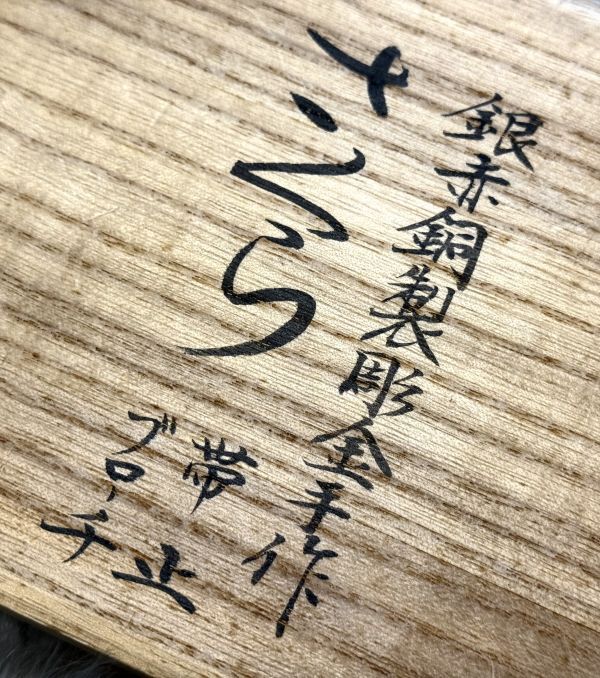 銀赤銅製彫金手作
さくら
帯止
ブローチ